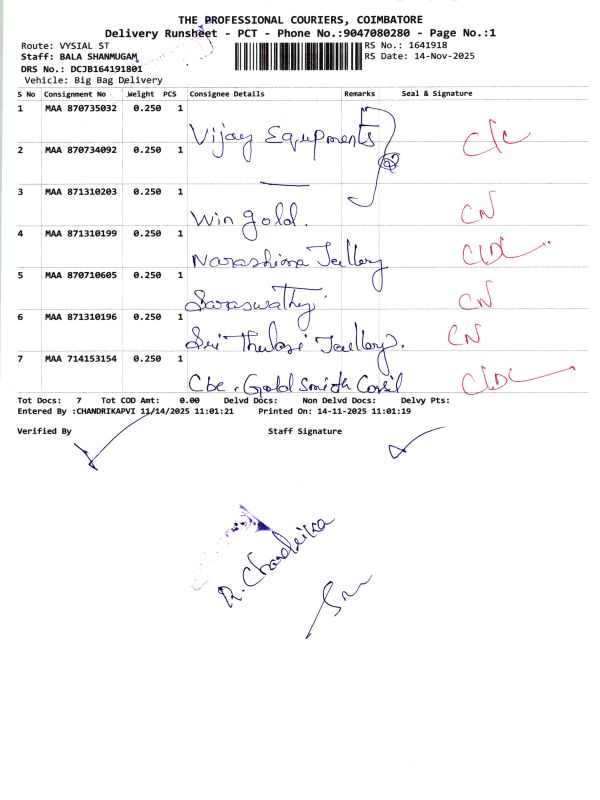 THE PROFESSIONAL COURIERS, COIMBATORE
Delivery Runsheet - PCT - Phone No.:9047080280 - Page No.:1
Route: VYSIAL ST RS No.: 1641918
Staff: BALA SHANMUGAM RS Date: 14-Nov-2025
DRS No.: DCJB164191801
Vehicle: Big Bag Delivery
S No Consignment No Weight PCS Consignee Details Remarks Seal & Signature
1 MAA 870735032 0.250 1 Vijay Equpments C/C
2 MAA 870734092 0.250 1
3 MAA 871310203 0.250 1 Win gold. CN
4 MAA 871310199 0.250 1 Narashima Jellery
5 MAA 870710605 0.250 1 Saraswathy CN
6 MAA 871310196 0.250 1 Sri Thulasi Jaellery. CN
7 MAA 714153154 0.250 1 Cbe. Gold Smith Covil
Tot Docs: 7 Tot COD Amt: 0.00 Delvd Docs: Non Delvd Docs: Delvy Pts:
Entered By :CHANDRIKAPVI 11/14/2025 11:01:21 Printed On: 14-11-2025 11:01:19
Verified By Staff Signature
R. Chandrika